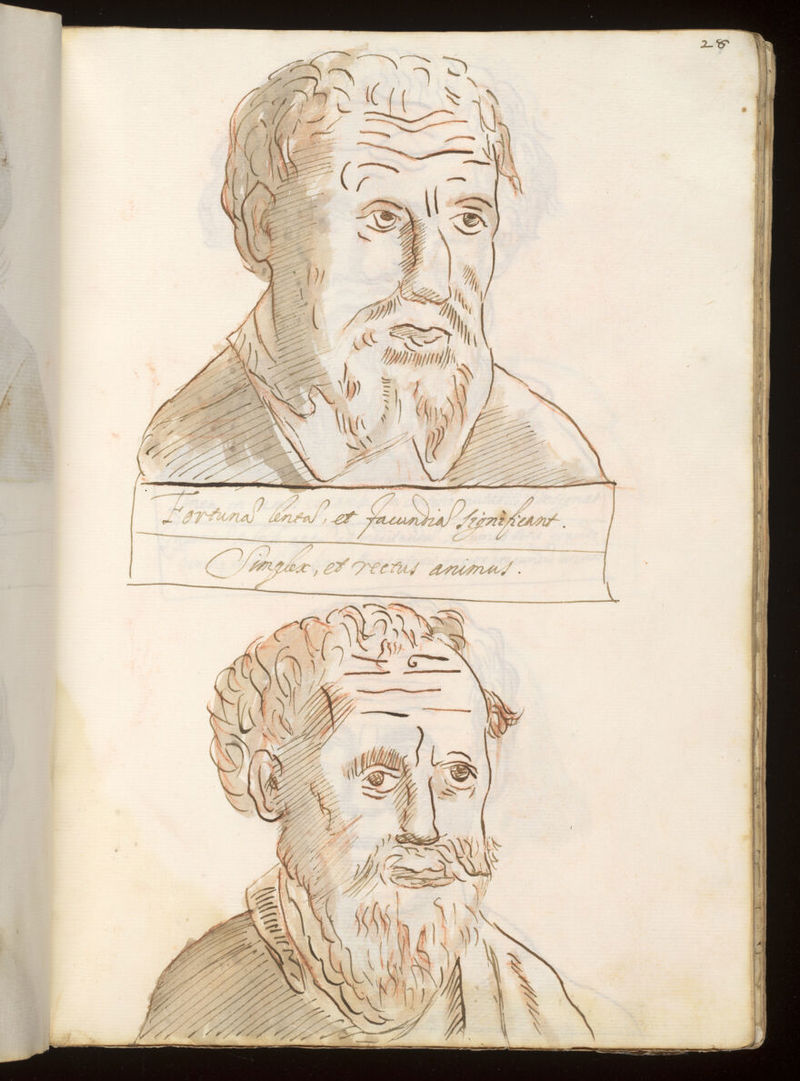 28
Fortunā lentā, et facundiā significant.
Simplex, et rectus animus.